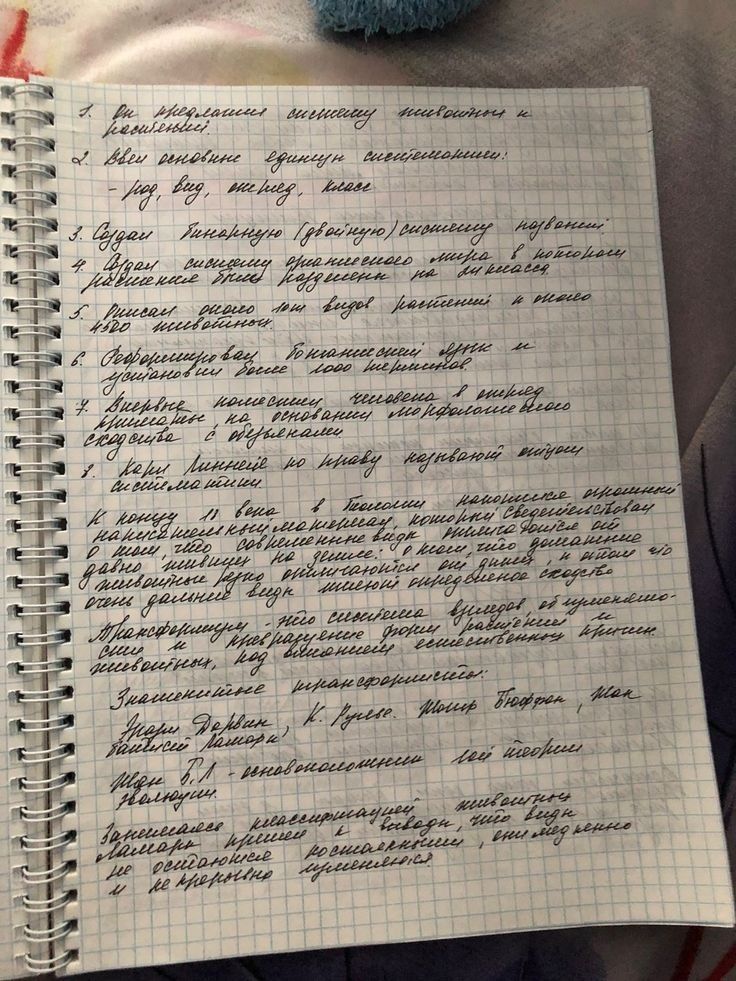 1. Он предложил систему животных и
растений.
2. Ввел основные единицы систематики:
- род, вид, отряд, класс
3. Создал бинарную (двойную) систему названий
4. Создал систему органического мира в которой
растения были разделены на класса
5. Описал около 10т видов растений и около
4500 животных.
6. Реформировал ботанический язык и
установил более 1000 терминов.
7. Впервые поместил человека в отряд
приматы, на основании морфологического
сходства с обезьянами.
8. Карл Линнея по праву называют отцом
систематики
К концу 18 века в биологии накопился огромный
материал, который свидетельствовал
о том, что современные виды отличаются от
давно живших на земле: о том, что домашние
животные резко отличаются от диких, и о том что
очень дальние виды имеют определеное сходство
Трансформизм - это система взглядов, об изменяемо-
сти и превращение форм растений и
животных, под влиянием естественных причин.
Знаменитые трансформисты:
Эразм Дарвин, К. Рулье. Жорж Бюффон, Жан
Батист Ламарк,
Жан Б.Л - основоположник 1ой теории
эволюции.
Занимаясь классификацией животных
Ламарк пришел к выводу, что виды
не остаются постаянными, они медленно
и непрерывно изменяются.